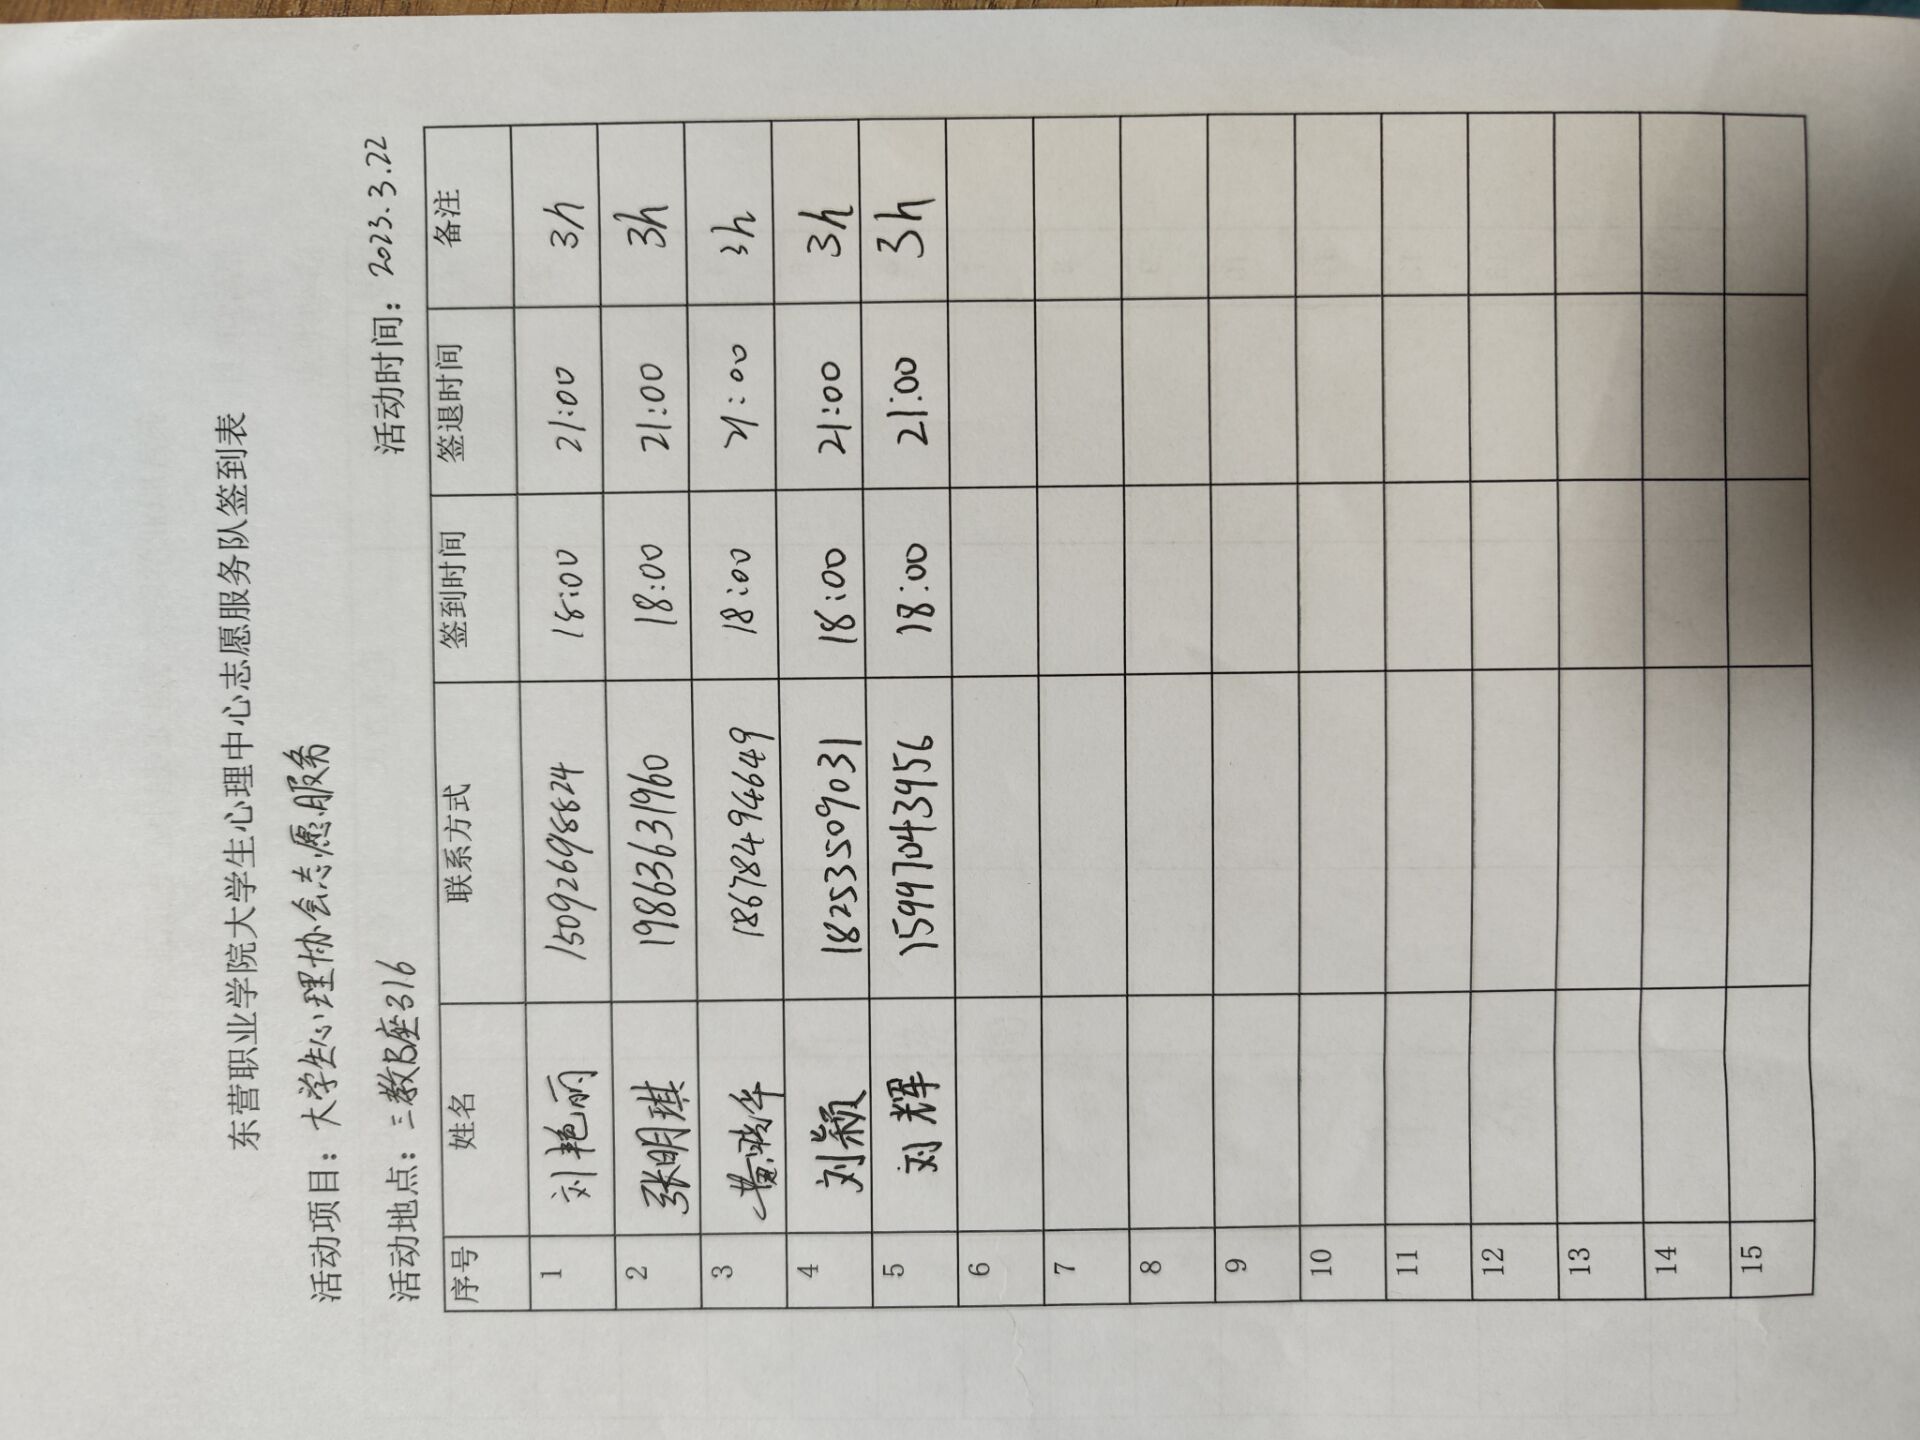 东营职业学院大学生心理中心志愿服务队签到表
活动项目：大学生心理协会志愿服务
活动地点：三教B座316 活动时间：2023.3.22
序号 姓名 联系方式 签到时间 签退时间 备注
1 刘艳丽 15092698824 18:00 21:00 3h
2 张明琪 19863631960 18:00 21:00 3h
3 18678494649 18:00 21:00 3h
4 刘颖 18253509031 18:00 21:00 3h
5 刘辉 15997043956 18:00 21:00 3h
6
7
8
9
10
11
12
13
14
15